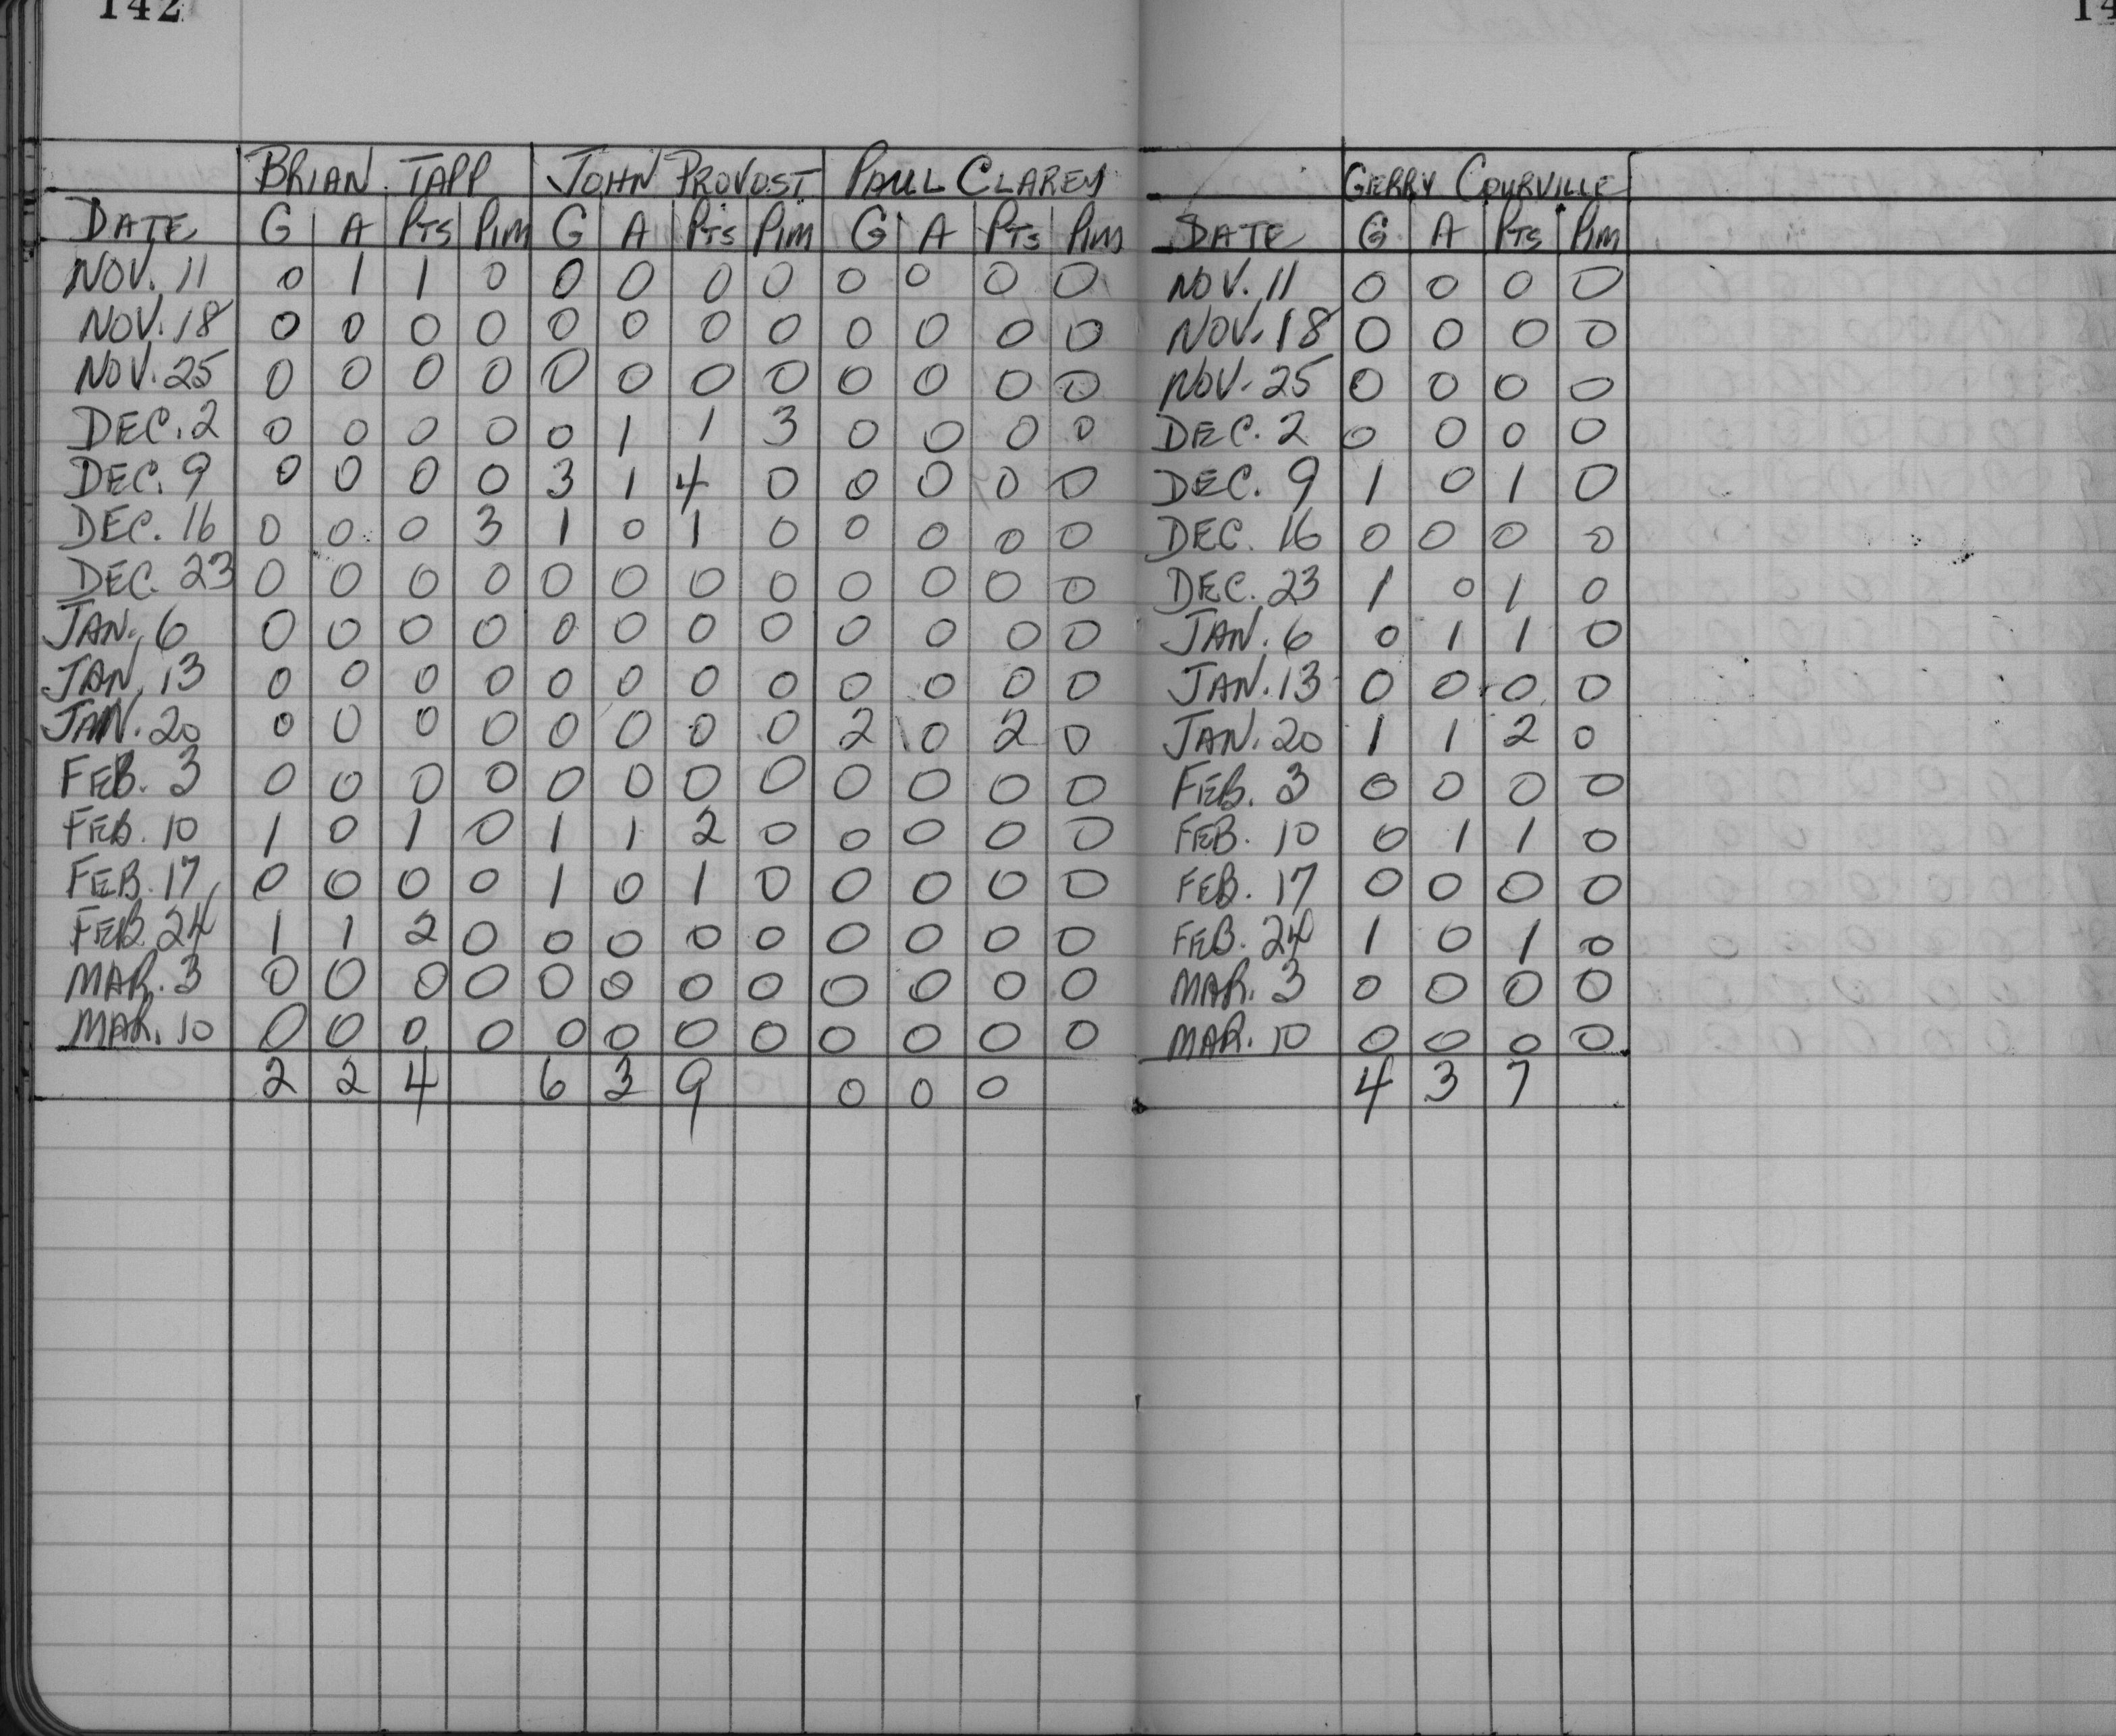 142
14
BRIAN TAPP JOHN PROVOST PAUL CLAREY
DATE G A PTS PIM G A PTS PIM G A PTS PIM
NOV. 11 0 1 1 0 0 0 0 0 0 0 0 0
NOV. 18 0 0 0 0 0 0 0 0 0 0 0 0
NOV. 25 0 0 0 0 0 0 0 0 0 0 0 0
DEC. 2 0 0 0 0 0 1 1 3 0 0 0 0
DEC. 9 0 0 0 0 3 1 4 0 0 0 0 0
DEC. 16 0 0 0 3 1 0 1 0 0 0 0 0
DEC. 23 0 0 0 0 0 0 0 0 0 0 0 0
JAN. 6 0 0 0 0 0 0 0 0 0 0 0 0
JAN. 13 0 0 0 0 0 0 0 0 0 0 0 0
JAN. 20 0 0 0 0 0 0 0 0 2 0 2 0
FEB. 3 0 0 0 0 0 0 0 0 0 0 0 0
FEB. 10 1 0 1 0 1 1 2 0 0 0 0 0
FEB. 17 0 0 0 0 1 0 1 0 0 0 0 0
FEB. 24 1 1 2 0 0 0 0 0 0 0 0 0
MAR. 3 0 0 0 0 0 0 0 0 0 0 0 0
MAR. 10 0 0 0 0 0 0 0 0 0 0 0 0
2 2 4 6 3 9 0 0 0
GERRY COURVILLE
DATE G A PTS PIM
NOV. 11 0 0 0 0
NOV. 18 0 0 0 0
NOV. 25 0 0 0 0
DEC. 2 0 0 0 0
DEC. 9 1 0 1 0
DEC. 16 0 0 0 0
DEC. 23 1 0 1 0
JAN. 6 0 1 1 0
JAN. 13 0 0 0 0
JAN. 20 1 1 2 0
FEB. 3 0 0 0 0
FEB. 10 0 1 1 0
FEB. 17 0 0 0 0
FEB. 24 1 0 1 0
MAR. 3 0 0 0 0
MAR. 10 0 0 0 0
4 3 7